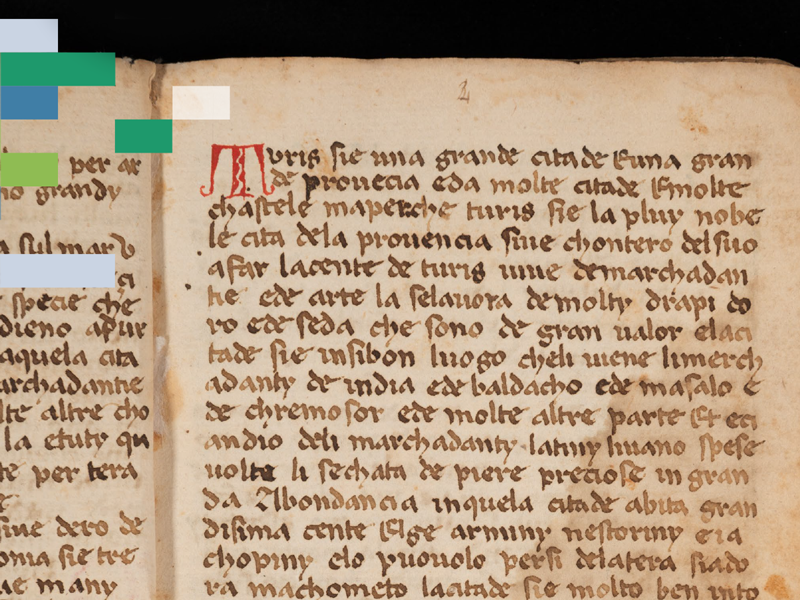 per ar
no grandy
a sul mar
ci
specie che
dieno apur
aquela cita
archadantie
lte altre cho
la etuty qu
te per tera
e
siue dero de
onia sie tre
ue many
2
Turis sie una grande citade Euna gran
de prouecia eda molte citade Emolte
chastele maperche turis sie la pluy nobe
le cita dela prouencia siue chontero delsuo
afar lacente de turis uiue demarchadan
tie ede arte la selauora demolty drapi do
ro ede seda che sono de gran ualor elaci
tade sie insibon luogo cheli uiene limerch
adanty de india ede baldacho ede masalo e
de chremosor ede molte altre parte Et eci
andio deli marchadanty latiny liuano spese
uolte li sechata de piere preciose in gran
da Abondancia inquela citade abita gran
disima cente Elge arminy nestoriny eia
chopiny elo puouolo persi delatera siado
ra machometo lacitade sie molto ben into